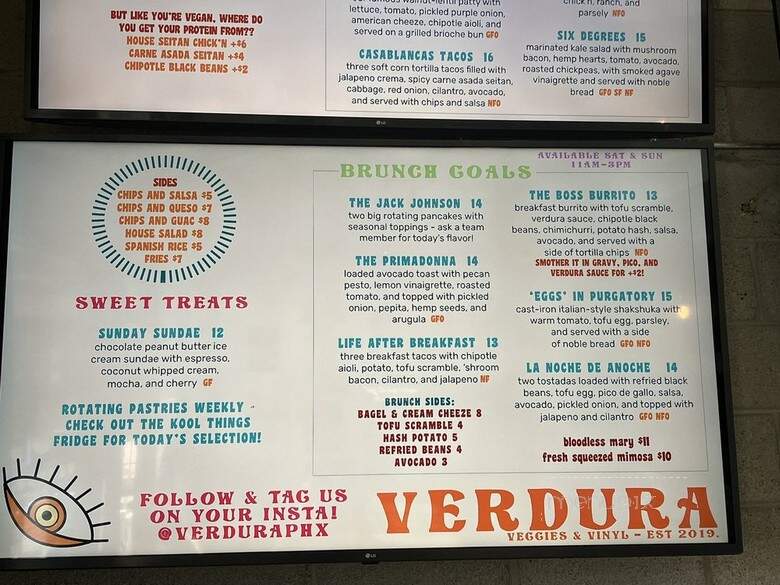 BUT LIKE YOU'RE VEGAN, WHERE DO
YOU GET YOUR PROTEIN FROM??
HOUSE SEITAN CHICK'N +$6
CARNE ASADA SEITAN +$4
CHIPOTLE BLACK BEANS +$2
walnut-lentil patty with
lettuce, tomato, pickled purple onion,
american cheeze, chipotle aioli, and
served on a grilled brioche bun GFO
CASABLANCAS TACOS 16
three soft corn tortilla tacos filled with
jalapeno crema, spicy carne asada seitan,
cabbage, red onion, cilantro, avocado,
and served with chips and salsa NFO
chick'n, ranch, and
parsely NFO
SIX DEGREES 15
marinated kale salad with mushroom
bacon, hemp hearts, tomato, avocado,
roasted chickpeas, with smoked agave
vinaigrette and served with noble
bread GFO SF NF
LG
SIDES
CHIPS AND SALSA $5
CHIPS AND QUESO $7
CHIPS AND GUAC $8
HOUSE SALAD $8
SPANISH RICE $5
FRIES $7
SWEET TREATS
SUNDAY SUNDAE 12
chocolate peanut butter ice
cream sundae with espresso,
coconut whipped cream,
mocha, and cherry GF
ROTATING PASTRIES WEEKLY -
CHECK OUT THE KOOL THINGS
FRIDGE FOR TODAY'S SELECTION!
BRUNCH GOALS
AVAILABLE SAT & SUN
11AM-3PM
THE JACK JOHNSON 14
two big rotating pancakes with
seasonal toppings - ask a team
member for today's flavor!
THE PRIMADONNA 14
loaded avocado toast with pecan
pesto, lemon vinaigrette, roasted
tomato, and topped with pickled
onion, pepita, hemp seeds, and
arugula GFO
LIFE AFTER BREAKFAST 13
three breakfast tacos with chipotle
aioli, potato, tofu scramble, 'shroom
bacon, cilantro, and jalapeno NF
BRUNCH SIDES:
BAGEL & CREAM CHEEZE 8
TOFU SCRAMBLE 4
HASH POTATO 5
REFRIED BEANS 4
AVOCADO 3
THE BOSS BURRITO 13
breakfast burrito with tofu scramble,
verdura sauce, chipotle black
beans, chimichurri, potato hash, salsa,
avocado, and served with a
side of tortilla chips NFO
SMOTHER IT IN GRAVY, PICO, AND
VERDURA SAUCE FOR +$2!
'EGGS' IN PURGATORY 15
cast-iron italian-style shakshuka with
warm tomato, tofu egg, parsley,
and served with a side
of noble bread GFO NFO
LA NOCHE DE ANOCHE 14
two tostadas loaded with refried black
beans, tofu egg, pico de gallo, salsa,
avocado, pickled onion, and topped with
jalapeno and cilantro GFO NFO
bloodless mary $11
fresh squeezed mimosa $10
FOLLOW & TAG US
ON YOUR INSTA!
@VERDURAPHX
VERDURA
VEGGIES & VINYL - EST 2019.
LG